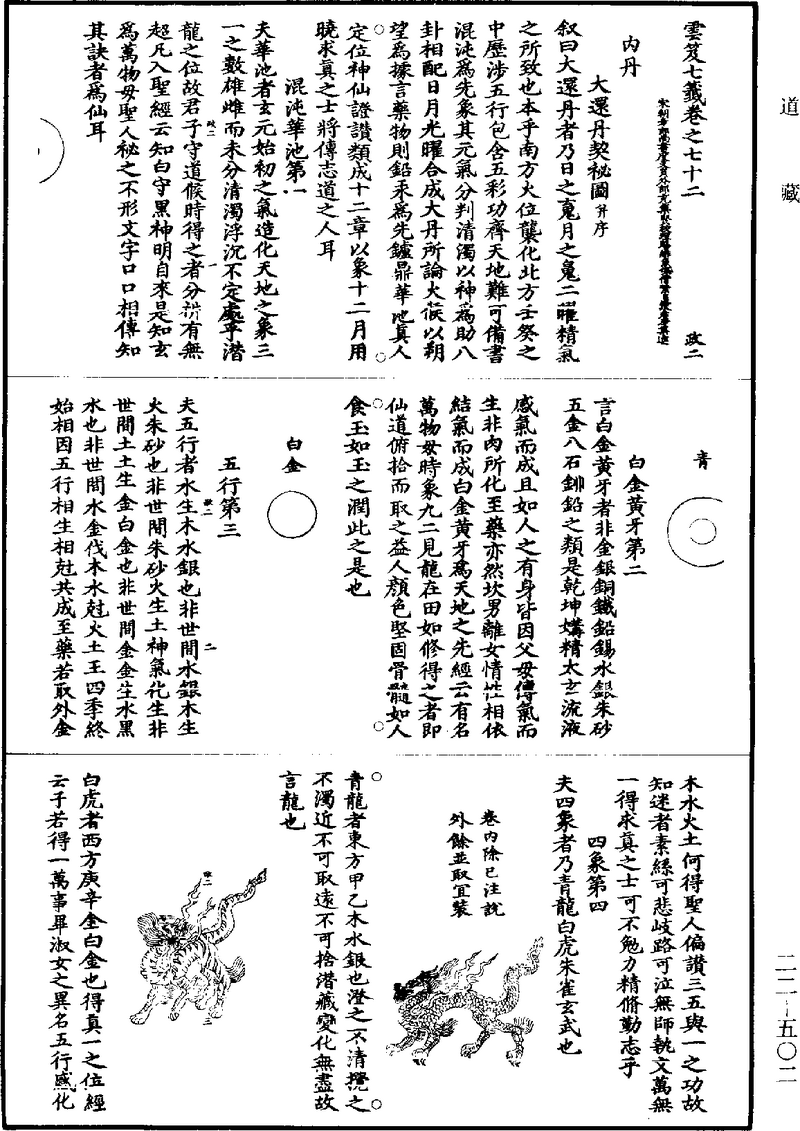 道藏
雲笈七籤卷之七十二
政二
內丹
大還丹契秘圖并序
叙曰大還丹者乃日之䰟月之魄二曜精氣
之所致也本乎南方火位襲化北方壬癸之
中歷涉五行包含五彩功齊天地難可備書
混沌為先象其元氣分判清濁以神為助八
卦相配日月光曜合成大丹所論火候以朔
望為據言藥物則鉛汞為先鑪鼎華池真人
定位神仙證讚類成十二章以象十二月用
曉求真之士將傳志道之人耳
混沌華池第一
夫華池者玄元始初之氣造化天地之象三
一之數雄雌而未分清濁浮沉不定處乎潛
龍之位故君子守道候時得之者分拆有無
超凡入聖經云知白守黑神明自來是知玄
為萬物母聖人秘之不形文字口口相傳知
其訣者為仙耳
青
白金黃牙第二
言白金黃牙者非金銀銅鐵鉛錫水銀朱砂
五金八石鉚鉛之類是乾坤媾精太玄流液
感氣而成且如人之有身皆因父母傳氣而
生非肉所化至藥亦然坎男離女情性相依
結氣而成白金黃牙為天地之先經云有名
萬物母時象九二見龍在田如修得之者即
仙道俯拾而取之益人顏色堅固骨髓如人
食玉如玉之潤此之是也
白金
五行第三
夫五行者水生木水銀也非世間水銀木生
火朱砂也非世間朱砂火生土神氣化生非
世間土土生金白金也非世間金金生水黑
水也非世間水金伐木水尅火土王四季終
始相因五行相生相尅共成至藥若取外金
木水火土何得聖人偏讚三五與一之功故
知迷者素絲可悲岐路可泣無師執文萬無
一得求真之士可不勉力精脩勤志乎
四象第四
夫四象者乃青龍白虎朱雀玄武也
卷內除已注說
外餘並取宜裝
青龍者東方甲乙木水銀也澄之不清攪之
不濁近不可取遠不可捨潛藏變化無盡故
言龍也
白虎者西方庚辛金白金也得真一之位經
云子若得一萬事畢淑女之異名五行感化
二二-五〇二